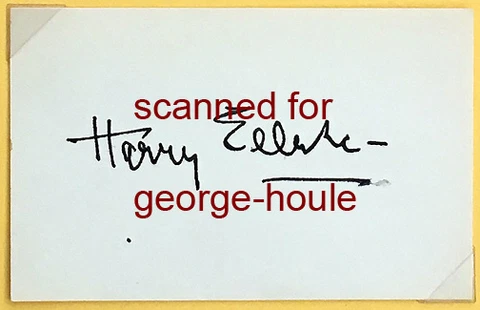 scanned for
Harry
george-houle